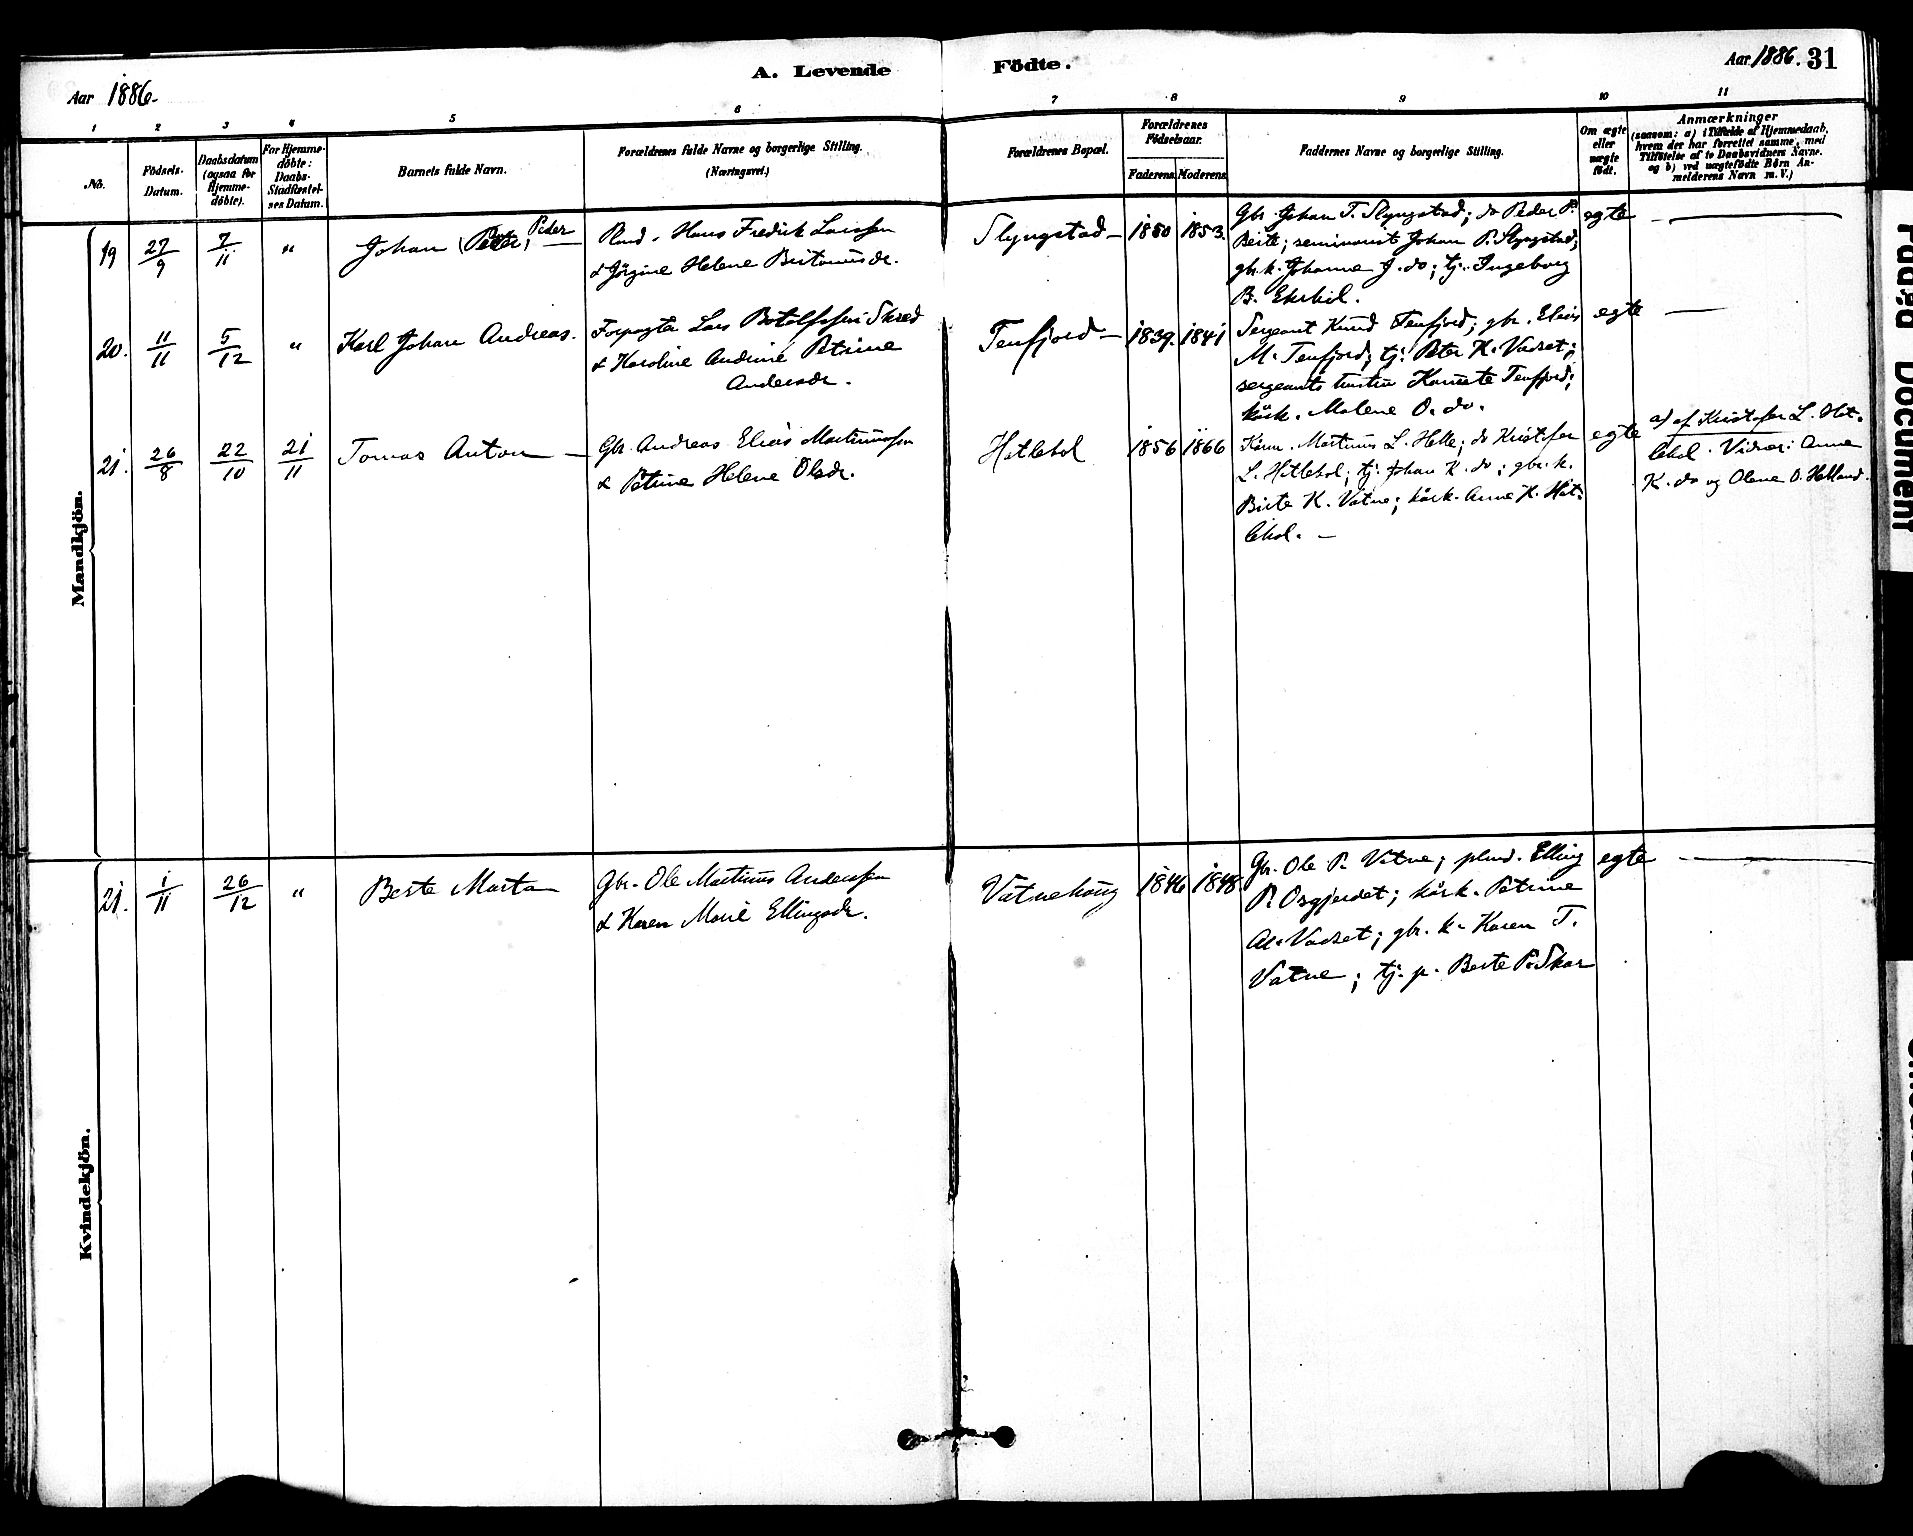 A. Levende Födte.
Aar 1886.
Aar 1886. 31
1 2 3 4 5 6 7 8 9 10 11
No.
Födsels-Datum.
Daabsdatum (ogsaa for Hjemme-döbte).
For Hjemme-döbte: Daabs-Stadfæstel-ses Datum.
Barnets fulde Navn.
Forældrenes fulde Navne og borgerlige Stilling. (Næringsvei.)
Forældrenes Bopæl.
Forældrenes Födselsaar.
Faderens Moderens
Faddernes Navne og borgerlige Stilling.
Om ægte eller uægte födt.
Anmærkninger
(saasom: a) i Tilfælde af Hjemmedaab, hvem der har forrettet samme, med Tilföielse af to Daabsvidners Navne. og b) ved uægtefödte Börn An-melderens Navn m. V.)
Mandkjön.
19 27/9 7/11 " Johan (Peter) Peder
Hans Fredrik Larssen
& Jörgine Helene
Slyngstad - 1850 1853.
Gbr. Johan T. Slyngstad; do Peder P.
Beite; seminarist Johan P. Slyngstad;
gbr.k. Johanne J. do; tj. Ingeborg
B. Ekrheil.
egte —
20. 11/11 5/12 " Karl Johan Andreas.
Forpagter Lars Botolfssen Skred
& Karoline Andrine Petrine
Andersdr.
Tenfjord - 1839. 1841
Sergeant Knud Tenfjord; gbr. Elias
M. Tenfjord; tj. Peter K. Vadset;
sergeants hustru Tenfjord;
kårk. Malene O. do.
egte —
21. 26/8 22/10 21/11 Tomas Anton —
Gbr. Andreas Elias Martinussen
& Petrine Helene Olsdr.
Hatlehol 1856 1866
Kårm. Martinus L. Helle; do Kristofer
L. Hatlehol; tj. Johan K. do; gbr.k.
Birte K. Vatne; kårk. Anne K. Hat-
lehol. —
egte
a) af Kristofer L. Hat-
lehol. Vidner: Anne
K. do og Olene O. Helland.
Kvindekjön.
21. 1/11 26/12 " Berte Marta
Gbr. Ole Martinus Anderssen
& Karen Marie Ellingsdr.
Vatnehaug 1846 1848.
Gbr. Ole P. Vatne; plmd. Elling
P. Osgjerdet; kårk. Petrine
A. Vadset; gbr. k. Karen T.
Vatne; tj. p. Berte P. Skar
egte —